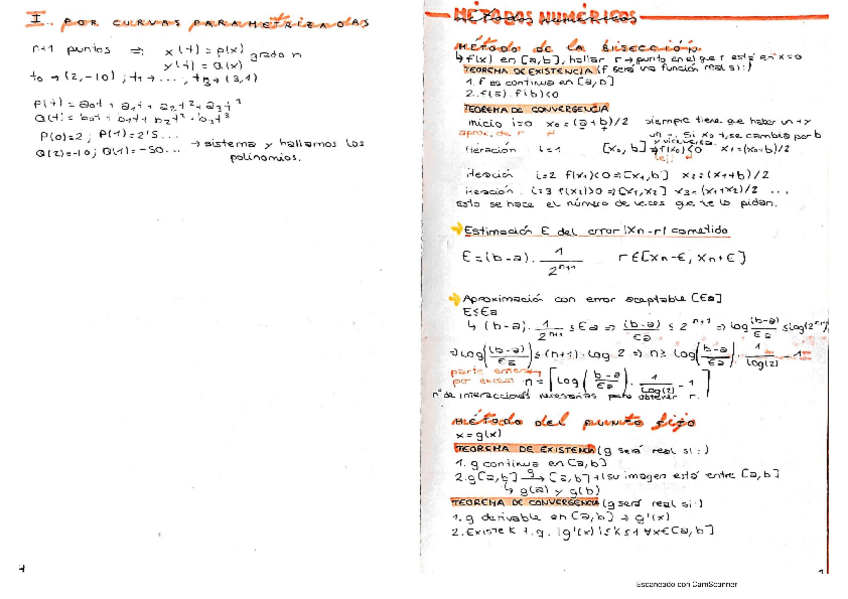 I. POR CURVAS PARAMETRIZADAS
n+1 puntos ⇒ x(t) = p(x) grado n
y(t) = Q(x)
t0 → (2,-10); t1 → ..., t3 → (3,1)
P(t) = a0 + a1t + a2t² + a3t³
Q(t) = b0 + b1t + b2t² + b3t³
P(0)=2; P(1)=2'5...
Q(2)=-10; Q(1)=-50... → sistema y hallamos los
polinomios.
MÉTODOS NUMÉRICOS
MÉTODO DE LA BISECCIÓN
↳ f(x) en [a,b], hallar r → punto en el que r está en x=0
TEOREMA DE EXISTENCIA (f será una función real si:)
1. f es continua en [a,b]
2. f(a) · f(b)<0
TEOREMA DE CONVERGENCIA
inicio i=0 x0=(a+b)/2 siempre tiene que haber un + y
aprox. de r un -. Si x0 +, se cambia por b
y viceversa.
iteración i=1 [x0, b] → f(x0)<0 x1=(x0+b)/2
(ej)
iteración i=2 f(x1)<0 ⇒ [x1,b] x2=(x1+b)/2
iteración i=3 f(x2)>0 ⇒ [x1,x2] x3=(x1+x2)/2 ...
esto se hace el número de veces que te lo pidan.
→ Estimación E del error |xn-r| cometido
E=(b-a) · 1/2ⁿ⁺¹ r∈[xn-E, xn+E]
→ Aproximación con error aceptable [Ea]
E≤Ea
↳ (b-a) · 1/2ⁿ⁺¹ ≤ Ea ⇒ (b-a)/Ea ≤ 2ⁿ⁺¹ ⇒ log (b-a)/Ea ≤ log(2ⁿ⁺¹)
⇒ log((b-a)/Ea) ≤ (n+1) · log 2 ⇒ n ≥ log((b-a)/Ea) · 1/log(2) - 1
parte entera
por exceso n = ⌈log((b-a)/Ea) · 1/log(2) - 1⌉
nº de interacciones necesarias para obtener r.
Método del punto fijo
x=g(x)
TEOREMA DE EXISTENCIA (g será real si:)
1. g continua en [a,b]
2. g[a,b] →g [a,b] → (su imagen está entre [a,b]
↳ g(a) y g(b)
TEOREMA DE CONVERGENCIA (g será real si:)
1. g derivable en [a,b] → g'(x)
2. Existe k t.q. |g'(x)| ≤ k ≤ 1 ∀x∈[a,b]
Escaneado con CamScanner